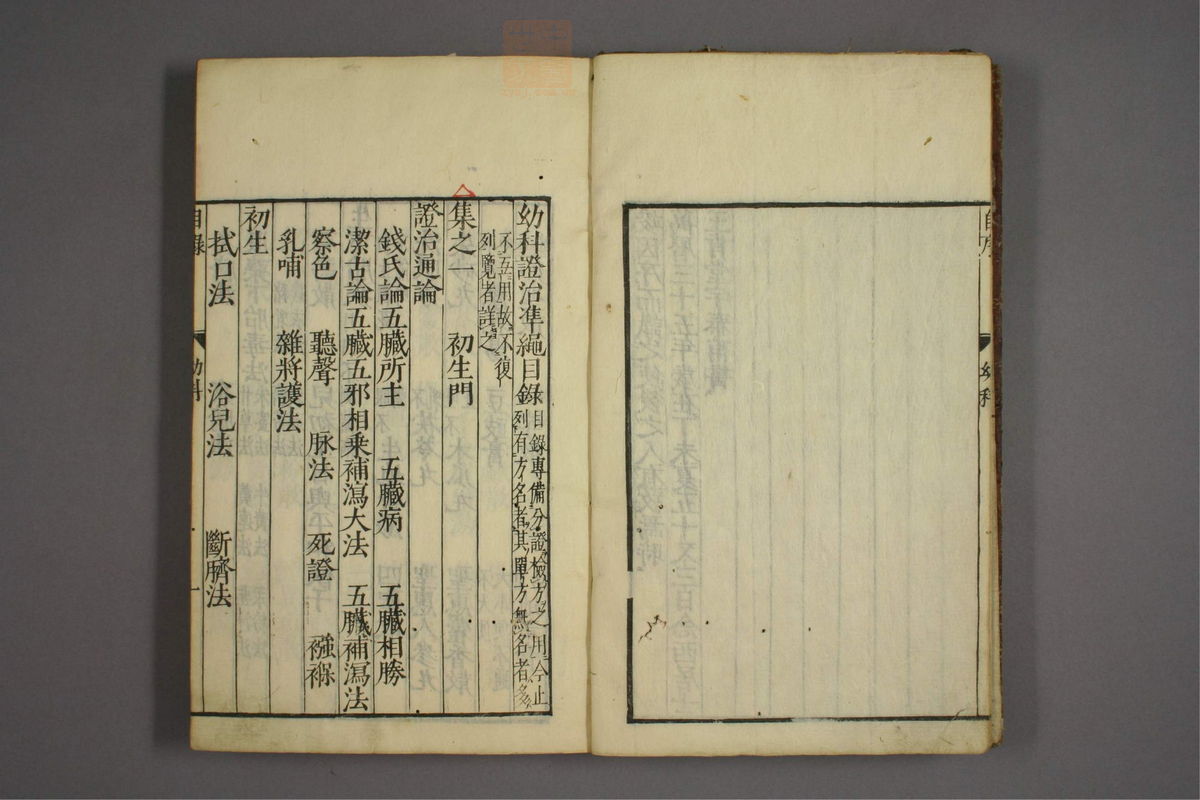 幼科證治準繩目錄 目錄專備分證檢方之用今止
列有方名者其單方無名者多
不五用故不復
列覽者詳之
集之一 初生門
證治通論
錢氏論五臟所主 五臟病 五臟相勝
潔古論五臟五邪相乘補瀉大法 五臟補瀉法
察色 聽聲 脉法 死證 襁褓
乳哺 雜將護法
初生
拭口法 浴兒法 斷臍法
目錄 幼科 一